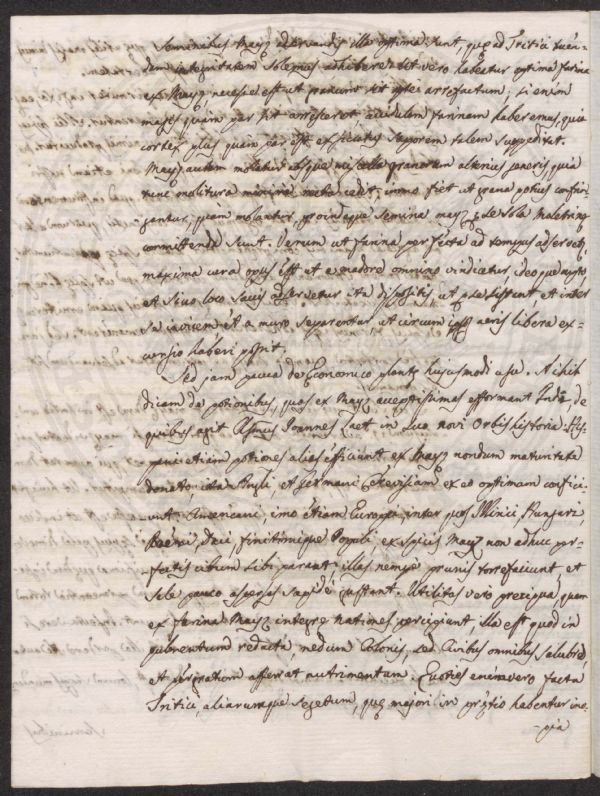 Seminibus Mayz adservandis illa optima sunt, quę ad Tritici tuen-
dam integritatem solemus adhibere. Ut vero habeatur optima farina
ex Mayz necesse est ut granum sit rite arrefactum; si enim
magis quam par sit arrescerat acidulam farinam haberemus, quia
cortex plus quam par est exsiccatus saporem talem suppeditat.
Mayz autem molatur absque miscella granorum alterius generis, quia
tunc molitura minime recta cedit; immo fiet ut grana potius confrin-
gantur, quam molantur, proindeque semina mayz de sola moletrinę
committenda sunt. Verum ut farina perfecta ad tempus adservetur,
maxima cura opus est ut e madore omnino vindicetur, ideoque
et sicco loco saccis adservetur ita dispositis, ut præ sistant, et inter
se invicem et a muro separentur, ut circum ipsos aeris libera ex-
cursio haberi possit.
Sed jam pauca de Economico plantę hujusmodi usu. Nihil
dicam de potionibus, quas ex Mayz acceptissimas efformant Indi, de
quibus agit Joannes Laet in suo novi Orbis historia. His-
pani etiam potiones alias efficiunt ex Mayz nondum maturitate
donato, ita Angli, et Germani Cerevisiam ex eo optimam confici-
unt. Americani, imo etiam Europæ, inter quos Hungari,
Daci, finitimique Populi, ex spicis Mayz non adhuc per-
fectis cibum sibi parant: illas nempe prunis torrefaciunt, et
sale pauco aspersas sapide gustant. Utilitas vero precipua, quam
ex farina Mayz integre nationes percipiunt, illa est quod in
pulmentum redacta, nedum Colonis, sed Civibus omnibus salubre,
et pergratum afferat nutrimentum. Quoties enimvero facta
Tritici, aliarumque segetum, quę majori in prętio habentur ino-
-pia